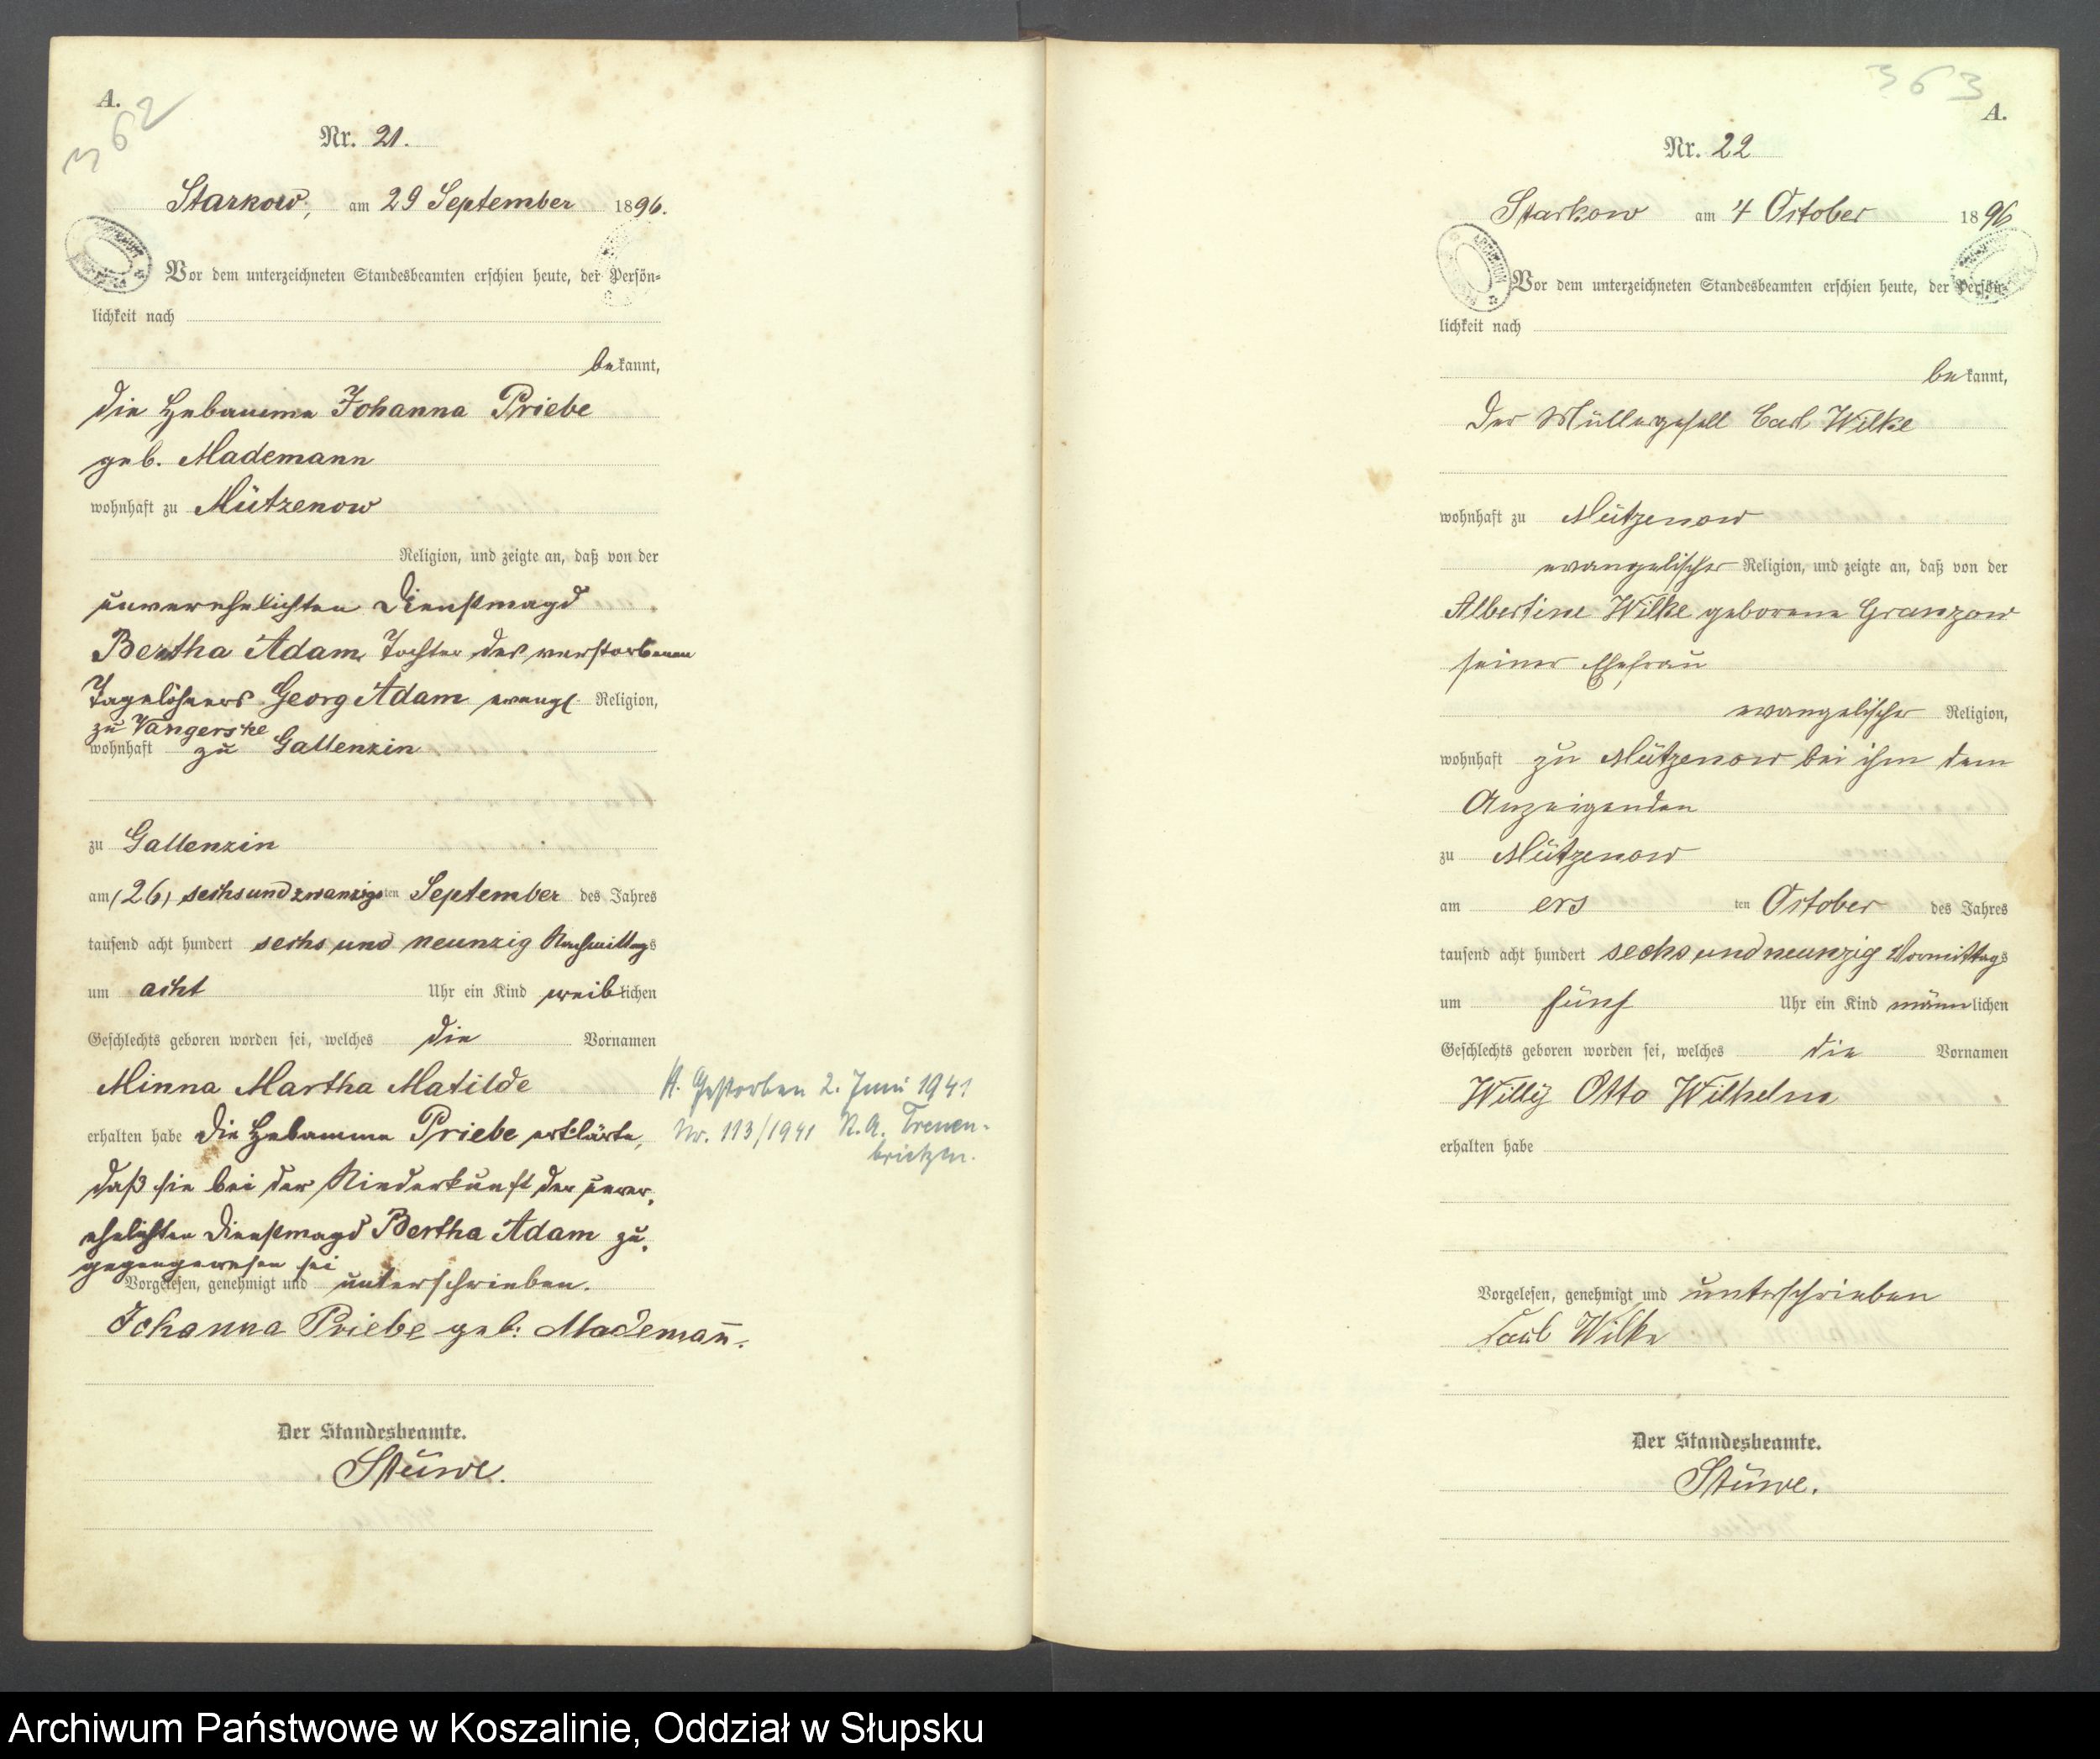 A.
362
Nr. 21.
Starkow, am 29 September 1896.
Vor dem unterzeichneten Standesbeamten erschien heute, der Persön=
lichkeit nach
bekannt,
die Hebamme Johanna Priebe
geb. Mademann
wohnhaft zu Mützenow
Religion, und zeigte an, daß von der
unverehelichten Dienstmagd
Bertha Adam, Tochter des verstorbenen
Tagelöhners Georg Adam evangl. Religion,
zu Vangerske
wohnhaft zu Gallenzin
zu Gallenzin
am (26) sechsundzwanzigsten September des Jahres
tausend acht hundert sechs und neunzig Nachmittags
um acht Uhr ein Kind weiblichen
Geschlechts geboren worden sei, welches die Vornamen
Minna Martha Matilde
erhalten habe die Hebamme Priebe erklärte,
daß sie bei der Niederkunft der unver,
ehelichten Dienstmagd Bertha Adam zu,
gegengewesen sei
Vorgelesen, genehmigt und unterschrieben.
Johanna Priebe geb: Mademan̄.
Der Standesbeamte.
Stüwe.
Gestorben 2. Juni 1941
Nr. 113/1941 Treuen-
brietzen.
363
A.
Nr. 22
Starkow am 4 October 1896
Vor dem unterzeichneten Standesbeamten erschien heute, der Persön=
lichkeit nach
bekannt,
der Müllergesell Carl Wilke
wohnhaft zu Mützenow
evangelischer Religion, und zeigte an, daß von der
Albertine Wilke geborene Granzow
seiner Ehefrau
evangelischer Religion,
wohnhaft zu Mützenow bei ihm dem
Anzeigenden
zu Mützenow
am ersten October des Jahres
tausend acht hundert sechs und neunzig Vormittags
um fünf Uhr ein Kind männlichen
Geschlechts geboren worden sei, welches die Vornamen
Willÿ Otto Wilhelm
erhalten habe
Vorgelesen, genehmigt und unterschrieben
Carl Wilke
Der Standesbeamte.
Stüwe.
Archiwum Państwowe w Koszalinie, Oddział w Słupsku